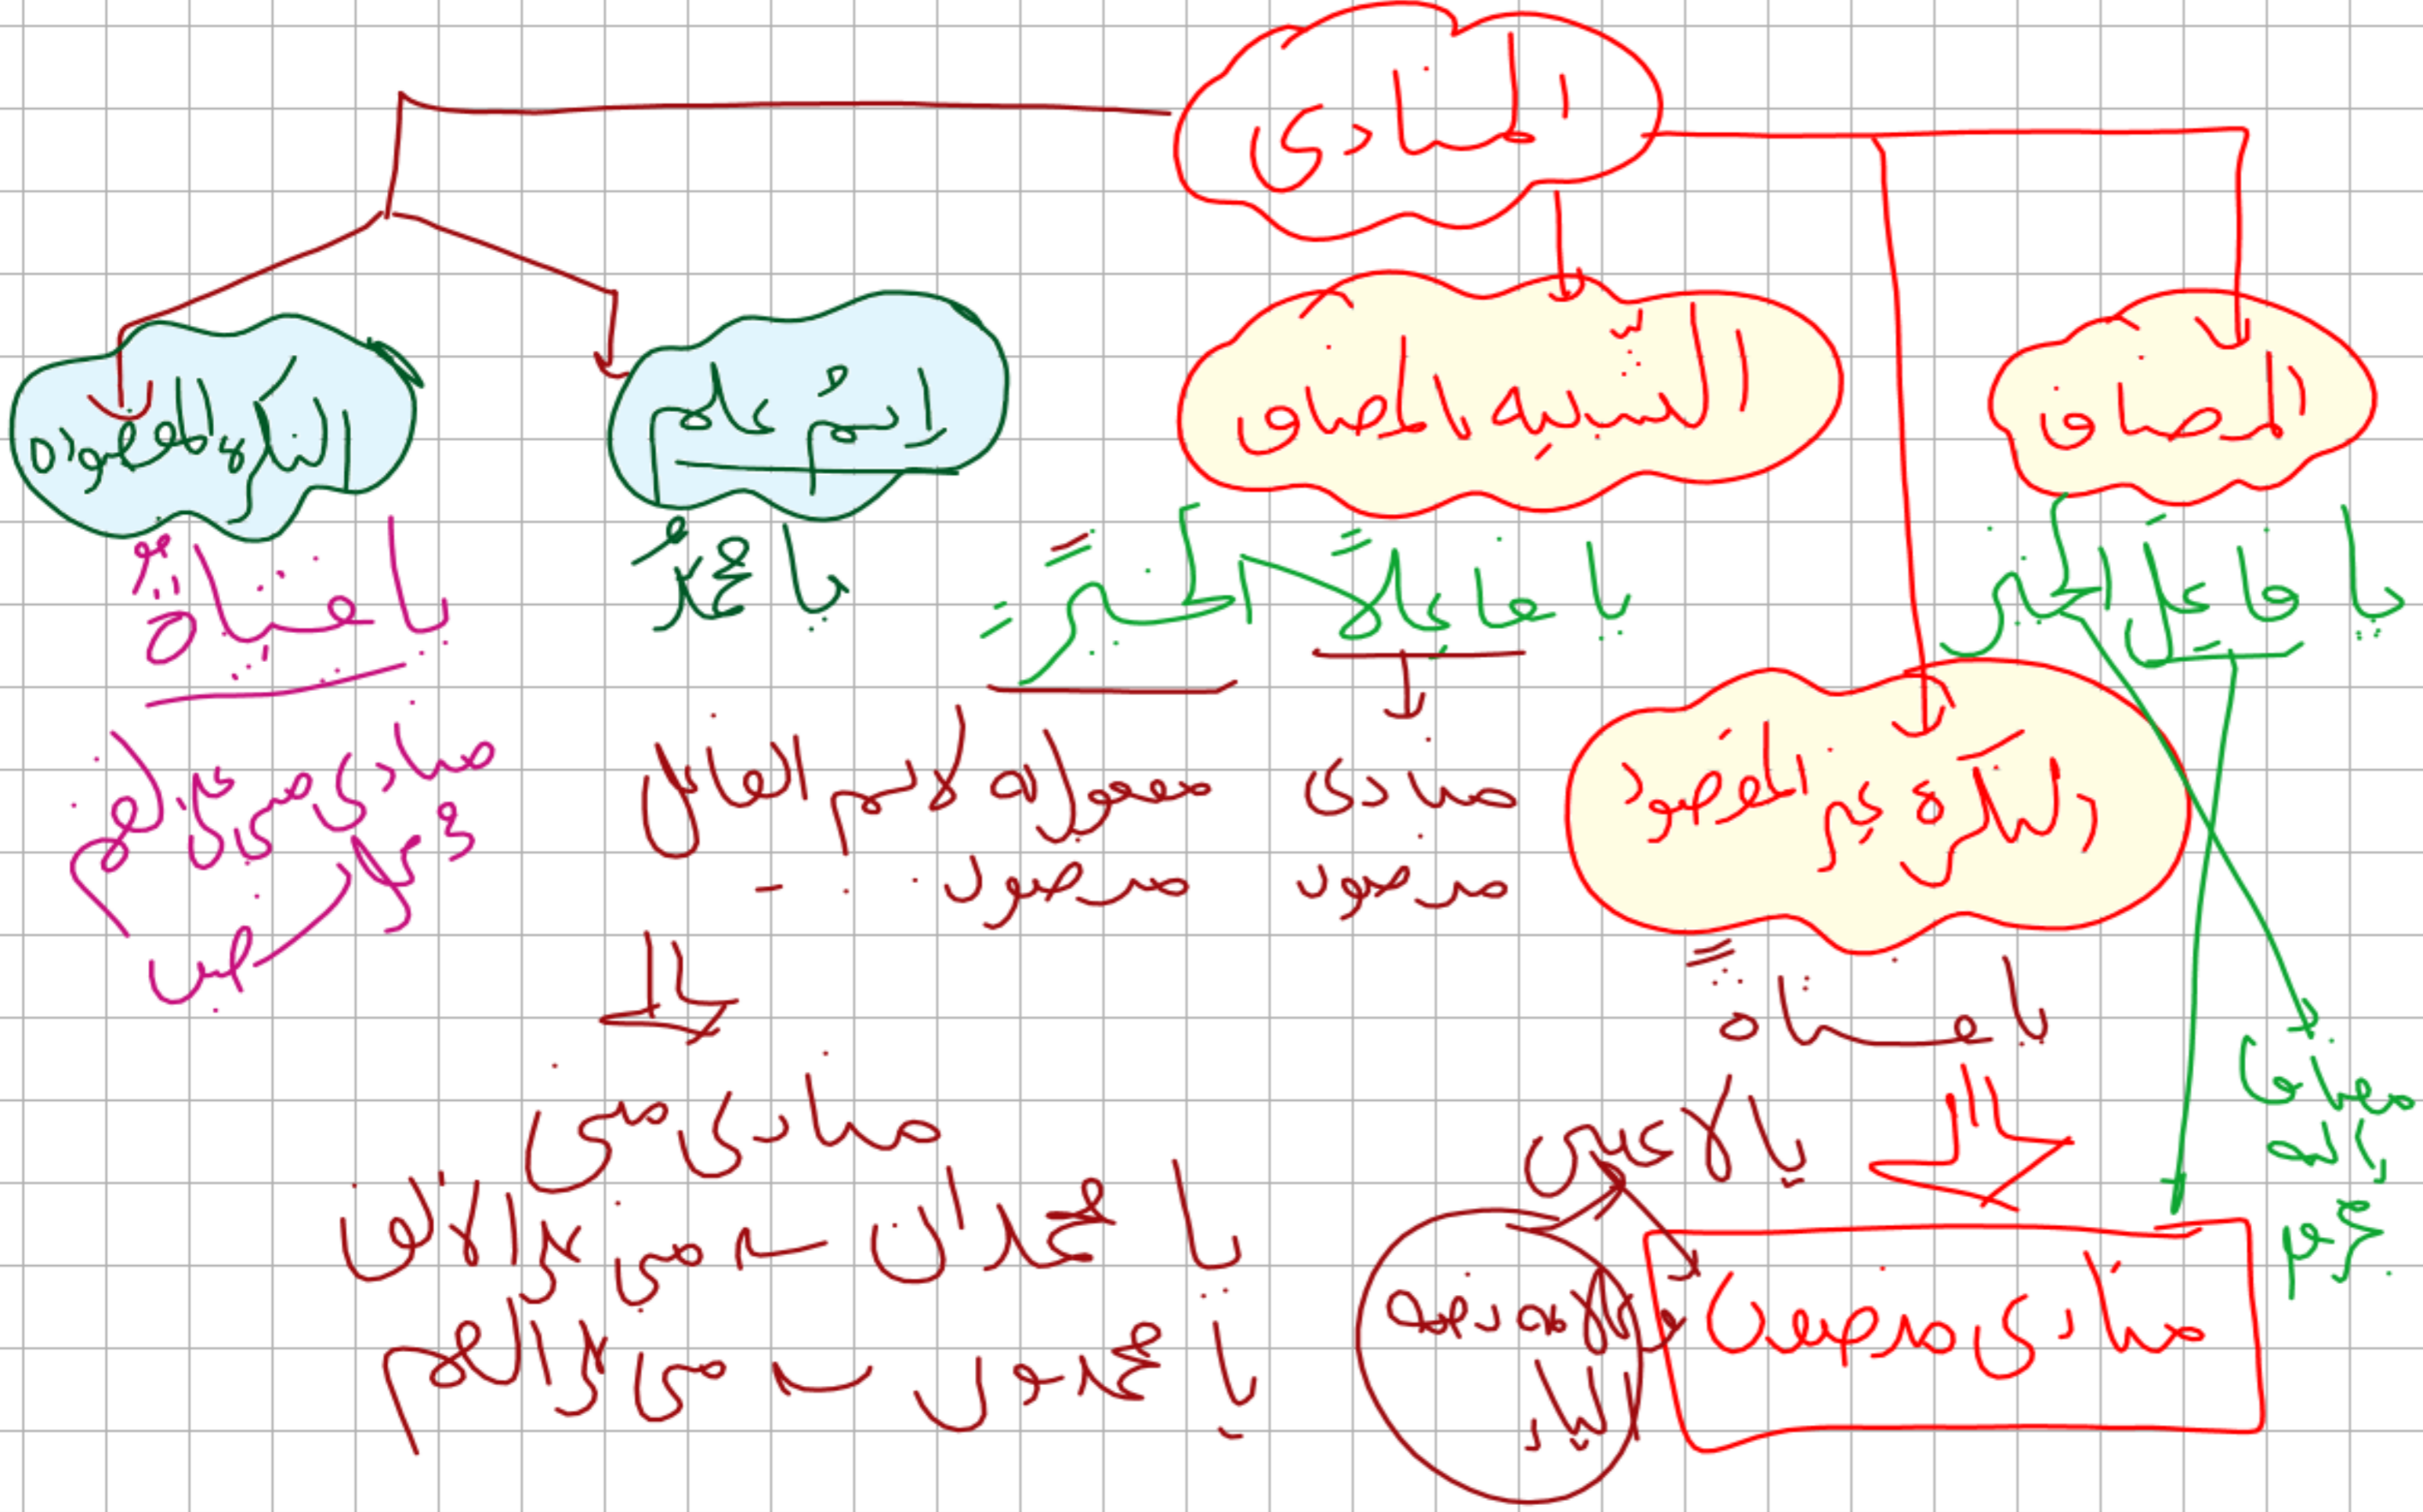 المنادى
المضاف
الشبيه بالمضاف
اسم علم
النكرة المقصودة
يا فاعلَ الخير
يا فاعلاً الخيرَ
يا محمدُ
يا فتاةُ
النكرة غير المقصود
منادى
منصوب
معموله لاسم الفاعل
منصوب
منادى مبنى
على الضم
نصب
يا فتاةً
يا لاعبين
مضاف
إليه
منادى منصوب
بالياء
منادى مبنى
يا محمدان ← مبنى على الألف
يا محمدون ← مبنى على الضم